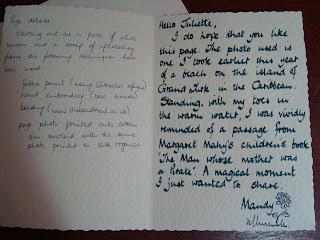 Page details
Starting out as a piece of white
muslin and a scrap of upholstery
fabric, the following techniques have
been used
fabric paint (
hand embroidery (
beading (
page photo printed onto cotton
then overlaid with the same
photo printed on silk organza
Hello Juliette,
I do hope that you like
this page. The photo used is
one I took earlier this year
of a beach on the island of
Grand Turk in the Caribbean.
Standing, with my toes in
the warm water, I was vividly
reminded of a passage from
Margaret Mahy's children's book
'The Man whose mother was
a Pirate'. A magical moment
I just wanted to share.
Mandy